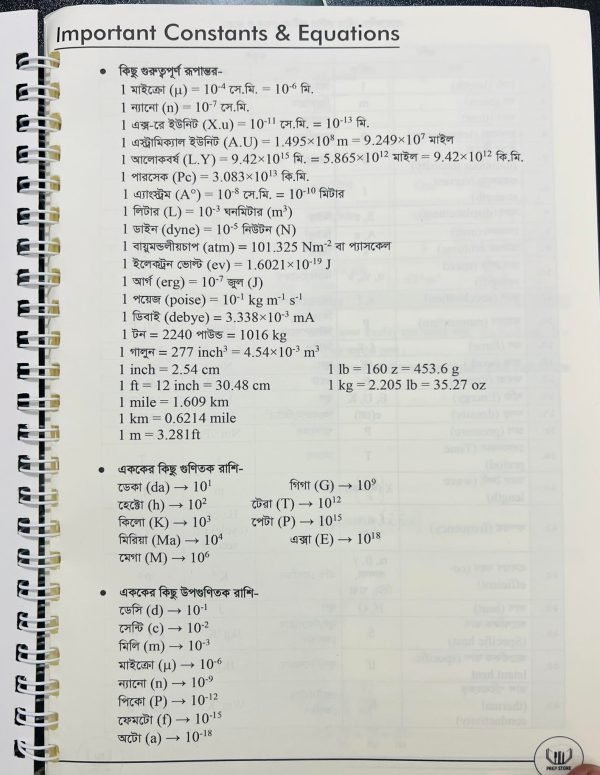 Important Constants & Equations
• কিছু গুরুত্বপূর্ণ রূপান্তর-
1 মাইক্রো (μ) = 10⁻⁴ সে.মি. = 10⁻⁶ মি.
1 ন্যানো (n) = 10⁻⁷ সে.মি.
1 এক্স-রে ইউনিট (X.u) = 10⁻¹¹ সে.মি. = 10⁻¹³ মি.
1 এস্ট্রোমিক্যাল ইউনিট (A.U) = 1.495×10⁸ m = 9.249×10⁷ মাইল
1 আলোকবর্ষ (L.Y) = 9.42×10¹⁵ মি. = 5.865×10¹² মাইল = 9.42×10¹² কি.মি.
1 পারসেক (Pc) = 3.083×10¹³ কি.মি.
1 এ্যাংস্ট্রম (A°) = 10⁻⁸ সে.মি. = 10⁻¹⁰ মিটার
1 লিটার (L) = 10⁻³ ঘনমিটার (m³)
1 ডাইন (dyne) = 10⁻⁵ নিউটন (N)
1 বায়ুমন্ডলীয়চাপ (atm) = 101.325 Nm⁻² বা প্যাসকেল
1 ইলেকট্রন ভোল্ট (ev) = 1.6021×10⁻¹⁹ J
1 আর্গ (erg) = 10⁻⁷ জুল (J)
1 পয়েজ (poise) = 10⁻¹ kg m⁻¹ s⁻¹
1 ডিবাই (debye) = 3.338×10⁻³ mA
1 টন = 2240 পাউন্ড = 1016 kg
1 গ্যালুন = 277 inch³ = 4.54×10⁻³ m³
1 inch = 2.54 cm 1 lb = 160 z = 453.6 g
1 ft = 12 inch = 30.48 cm 1 kg = 2.205 lb = 35.27 oz
1 mile = 1.609 km
1 km = 0.6214 mile
1 m = 3.281ft
• এককের কিছু গুণিতক রাশি-
ডেকা (da) → 10¹ গিগা (G) → 10⁹
হেক্টো (h) → 10² টেরা (T) → 10¹²
কিলো (K) → 10³ পেটা (P) → 10¹⁵
মিরিয়া (Ma) → 10⁴ এক্সা (E) → 10¹⁸
মেগা (M) → 10⁶
• এককের কিছু উপগুণিতক রাশি-
ডেসি (d) → 10⁻¹
সেন্টি (c) → 10⁻²
মিলি (m) → 10⁻³
মাইক্রো (μ) → 10⁻⁶
ন্যানো (n) → 10⁻⁹
পিকো (P) → 10⁻¹²
ফেমটো (f) → 10⁻¹⁵
অটো (a) → 10⁻¹⁸
PREP STORE